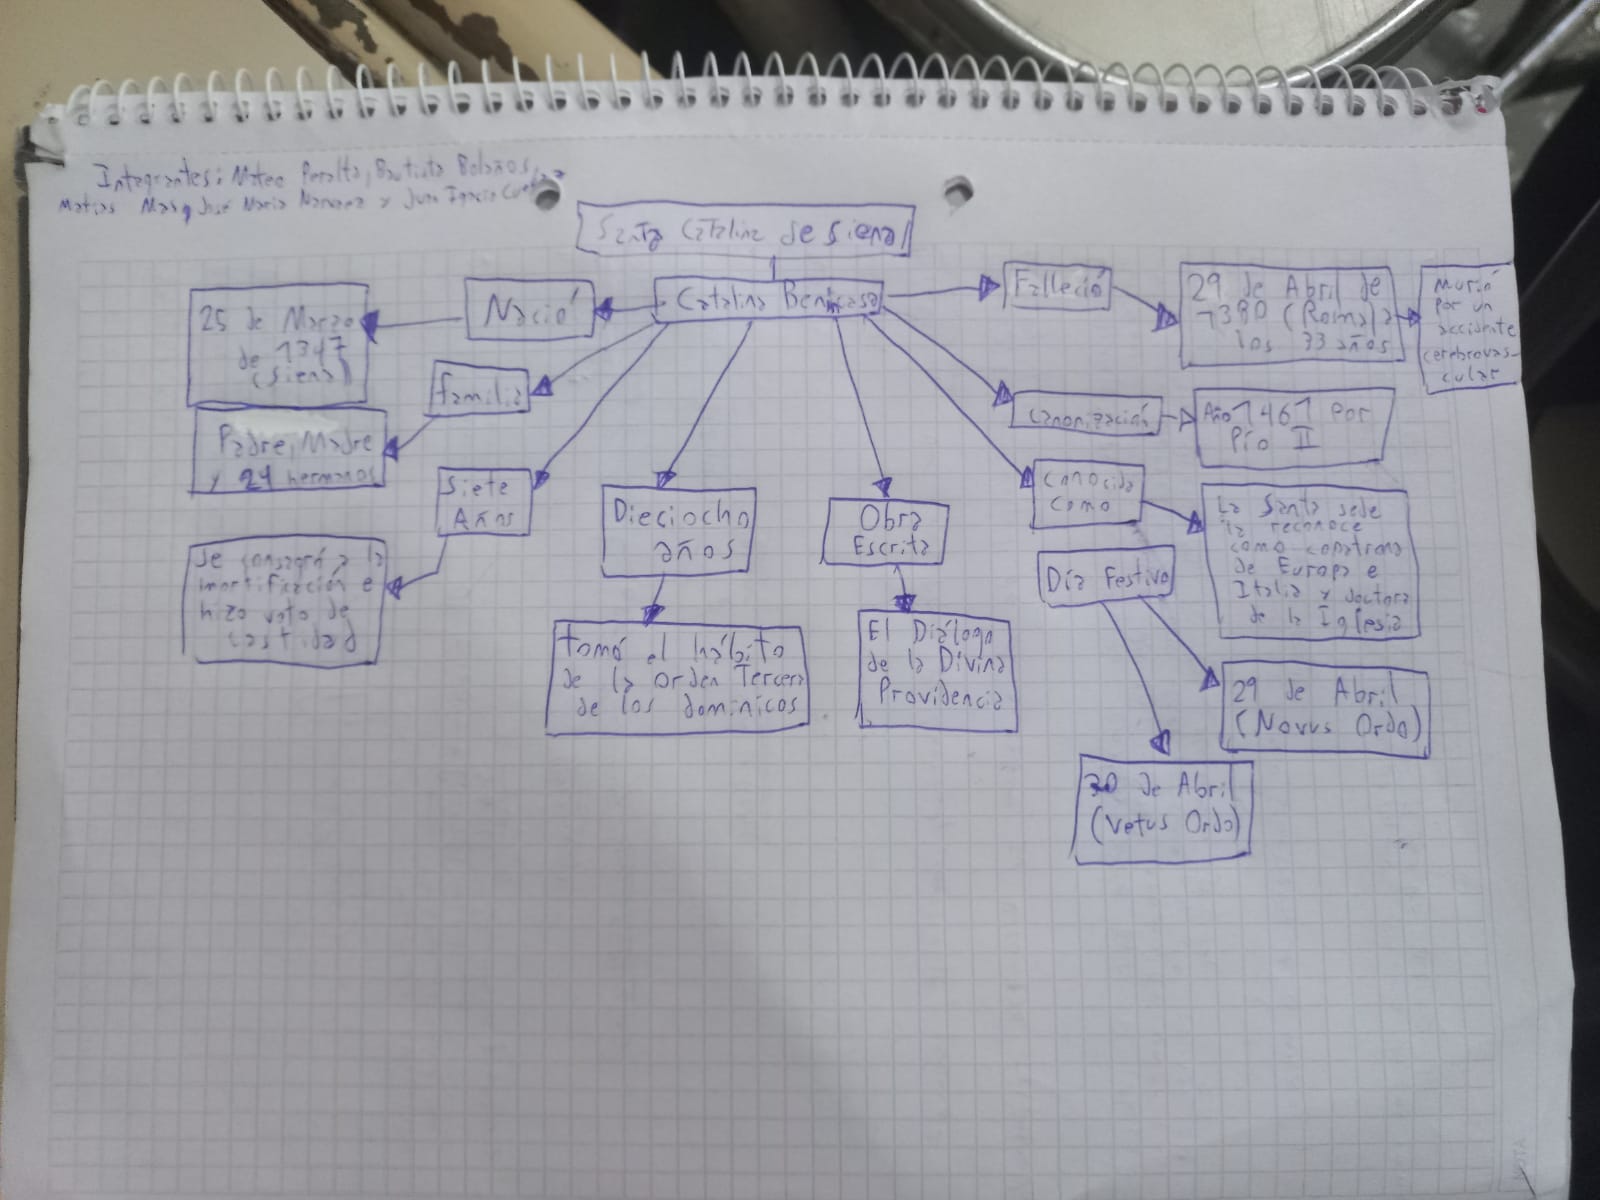 Integrantes: Mateo Peralta, Bautista Bolaños,
Matias Mas, José Maria Narvaez y Juan Ignacio
Santa Catalina de Siena
Catalina Benincasa
Nació
25 de Marzo
de 1347
(Siena)
Familia
Padre, Madre
y 24 hermanos
Siete
Años
Se consagró a la
mortificación e
hizo voto de
castidad
Dieciocho
años
tomó el hábito
de la Orden Tercera
de los dominicos
Obra
Escrita
El Diálogo
de la Divina
Providencia
Falleció
29 de Abril de
1380 (Roma) a
los 33 años
Murió
por un
accidente
cerebrovas-
cular
Canonización
Año 1461 por
Pío II
Conocida
como
La Santa sede
la reconoce
como copatrona
de Europa e
Italia y doctora
de la Iglesia
Día Festivo
29 de Abril
(Novus Ordo)
30 de Abril
(Vetus Ordo)